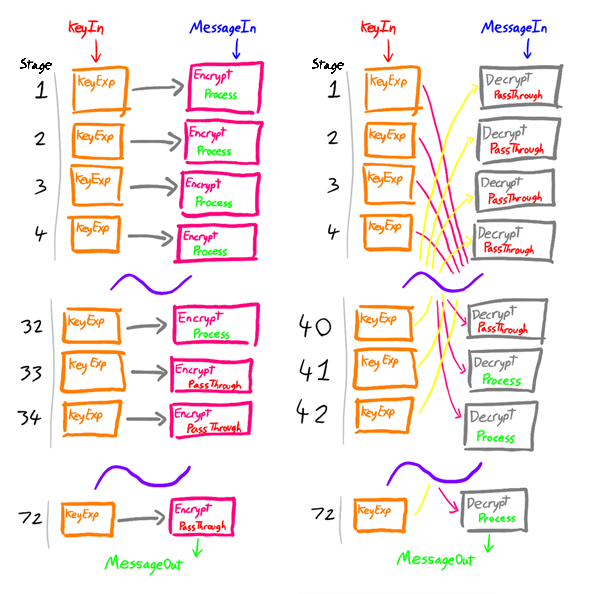 KeyIn
MessageIn
Stage
1
KeyExp
Encrypt
Process
2
KeyExp
Encrypt
Process
3
KeyExp
Encrypt
Process
4
KeyExp
Encrypt
Process
32
KeyExp
Encrypt
Process
33
KeyExp
Encrypt
PassThrough
34
KeyExp
Encrypt
PassThrough
72
KeyExp
Encrypt
PassThrough
MessageOut
KeyIn
MessageIn
Stage
1
KeyExp
Decrypt
PassThrough
2
KeyExp
Decrypt
PassThrough
3
KeyExp
Decrypt
PassThrough
4
KeyExp
Decrypt
PassThrough
40
KeyExp
Decrypt
PassThrough
41
KeyExp
Decrypt
Process
42
KeyExp
Decrypt
Process
72
KeyExp
Decrypt
Process
MessageOut